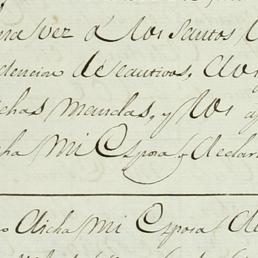 vez a los Santos
dencion de cautivos, a los
chas mandas, y los
cha mi Esposa y declar
dicha mi Esposa de